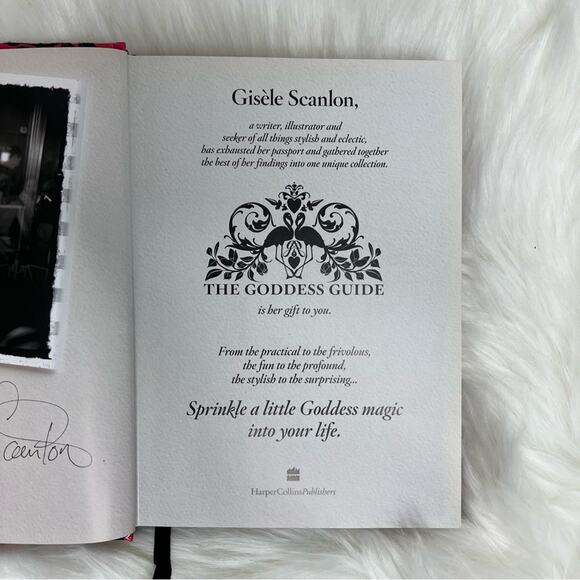 Gisèle Scanlon,
a writer, illustrator and
seeker of all things stylish and eclectic,
has exhausted her passport and gathered together
the best of her findings into one unique collection.
THE GODDESS GUIDE
is her gift to you.
From the practical to the frivolous,
the fun to the profound,
the stylish to the surprising...
Sprinkle a little Goddess magic
into your life.
HarperCollinsPublishers
Scanlon